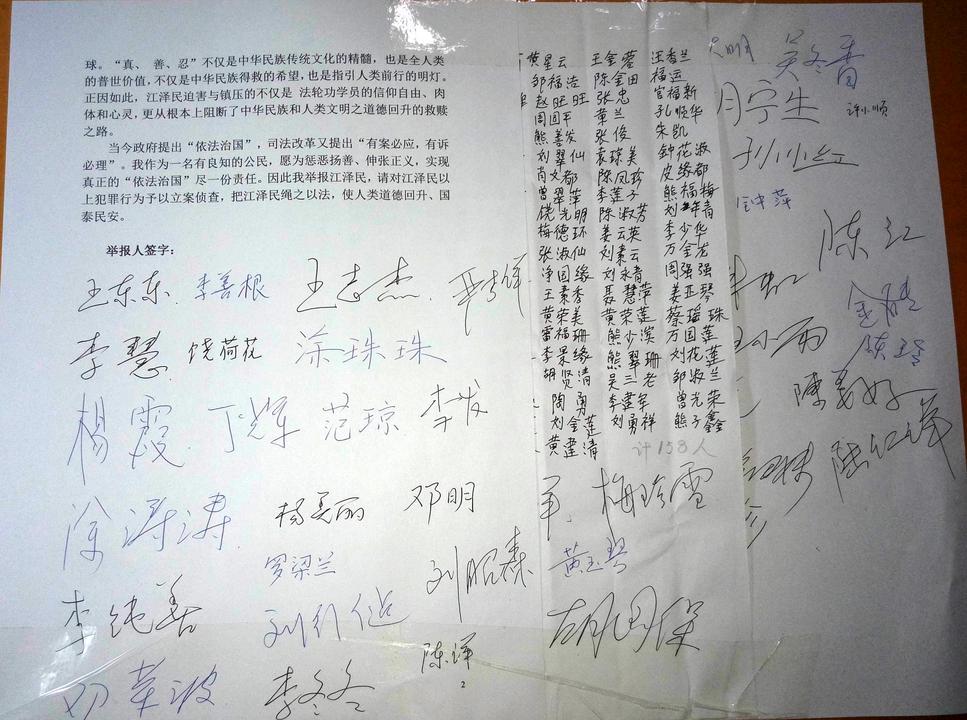 球。“真、善、忍”不仅是中华民族传统文化的精髓，也是全人类
的普世价值，不仅是中华民族得救的希望，也是指引人类前行的明灯。
正因如此，江泽民迫害与镇压的不仅是 法轮功学员的信仰自由、肉
体和心灵，更从根本上阻断了中华民族和人类文明之道德回升的救赎
之路。
当今政府提出“依法治国”，司法改革又提出“有案必应，有诉
必理”。我作为一名有良知的公民，愿为惩恶扬善、伸张正义，实现
真正的“依法治国”尽一份责任。因此我举报江泽民，请对江泽民以
上犯罪行为予以立案侦查，把江泽民绳之以法，使人类道德回升、国
泰民安。
举报人签字：
王东东 李善根 王志杰
李慧 饶荷花 涂珠珠
杨霞 丁光军 范琼 李发
徐涛涛 杨美丽 邓明
罗梁兰 刘昭森
李纯善
陈洋
邓革波 李冬冬
2
黄星云 王金蓉 汪香兰
邹福浩 陈金田 福运
赵旺旺 张忠 官福新
周国平 章兰 孔顺华
熊善发 张俊 朱凯
刘翠仙 袁琼美 钟花淑
肖文都 陈凤珍 皮缘都
曾翠萍 李莲子 熊福梅
饶光明 陈淑芳 刘年青
梅德环 姜云英 李少华
张淑仙 刘素云 万金龙
净国缘 刘永青 周强强
王素秀 聂慧萍 姜亚琴
黄荣美 黄荣莲 蔡瑶珠
雷福珊 熊少滨 万国莲
李景缘 熊翠珊 刘花莲
胡贤清 吴三老 邹淑兰
陶勇 李建军 曾光荣
刘金莲 刘勇祥 熊子鑫
黄建清
计158人
梅珍雪
黄玉琴
胡国保
吴冬香
许小顺
月宁生
陈红